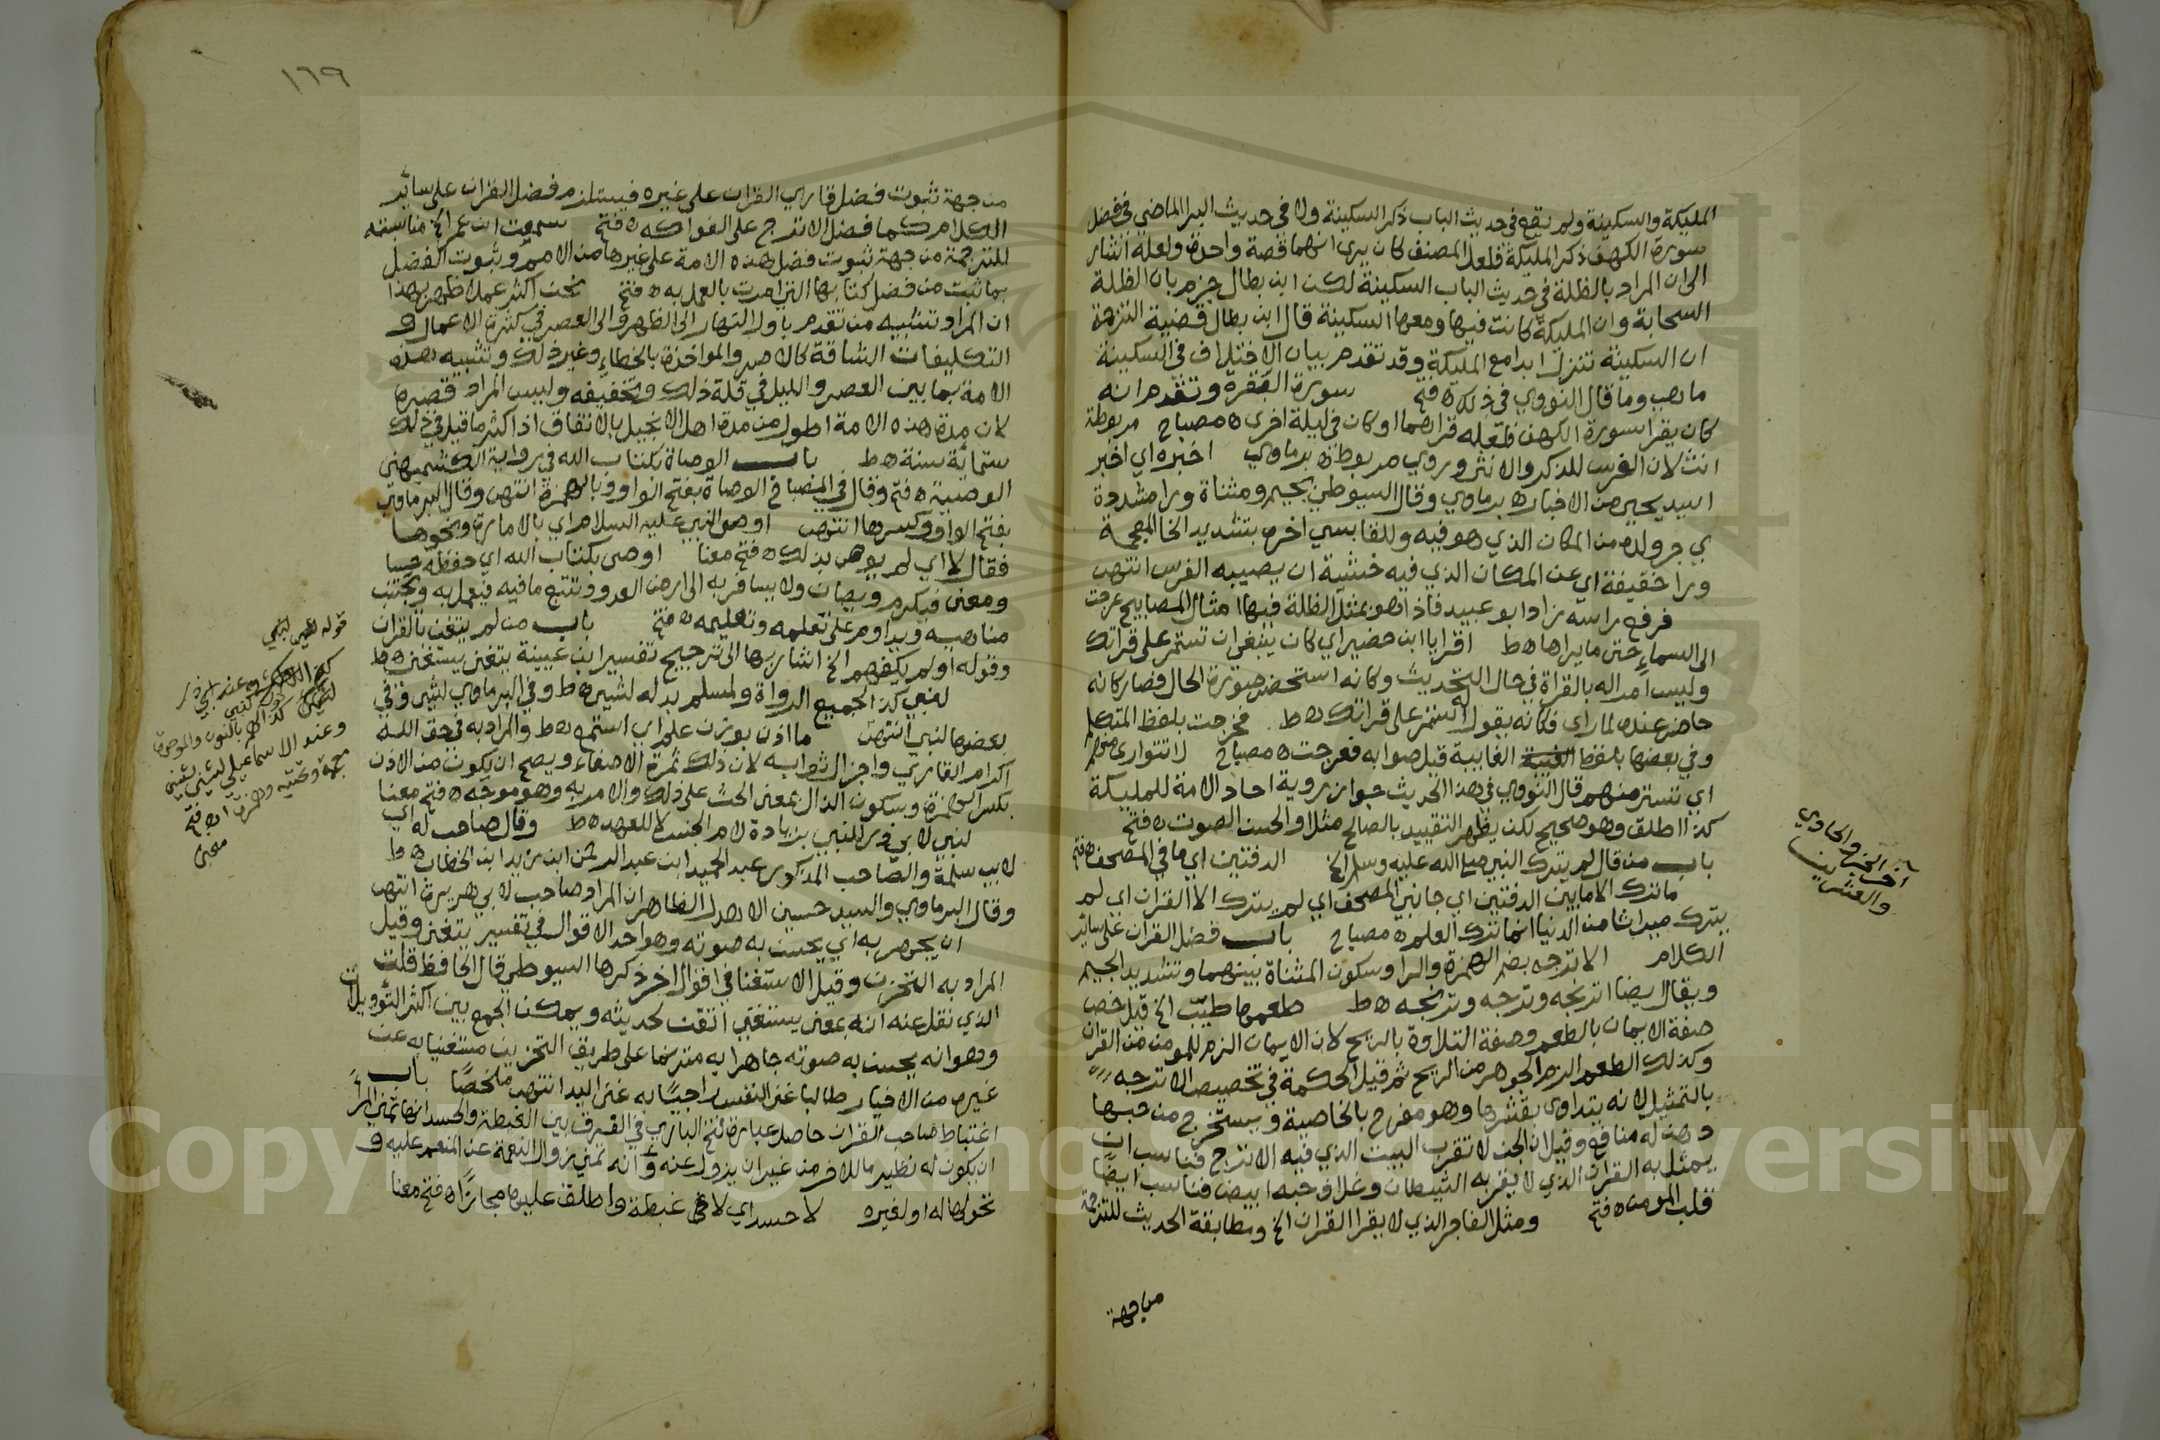 المليكة والسكينة ولم يقع في حديث الباب ذكر السكينة ولا في حديث البرا الماضي في فضل
سورة الكهف ذكر المليكة فلعل المصنف كان يرى انهما قصة واحدة ولعله اشار
الى ان المراد بالظلة في حديث الباب السكينة لكن ابن بطال جزم بان الظلة
السحابة وان المليكة كانت فيها ومعها السكينة قال ابن بطال قضية الترجمة
ان السكينة تنزل ابدا مع المليكة وقد تقدم بيان الاختلاف في السكينة
ما هي وما قال النووي في ذلك ه فتح سورة البقرة وتقدم انه
كان يقرا سورة الكهف فلعله قراهما او كان في ليلة اخرى ه مصباح مربوطة
انث لان الفرس للذكر والانثى وروي مربوط ه برماوي اخبره اي اخبر
اسيد يحيى من الاخبار ه برماوي وقال السيوطي بجيم ومثناة ورا مشددة
ي جر ولده من المكان الذي هو فيه وللقابسي اخره بتشديد الخا المعجمة
ورا خفيفة اي عن المكان الذي فيه خشية ان يصيبه الفرس انتهى
فرفع راسه زاد ابو عبيد فاذا هو بمثل الظلة فيها امثال المصابيح عرجت
الى السماء حتى ما يراها ه ط اقرا يا ابن حضير اي كان ينبغي ان تستمر على قراتك
وليس امرا له بالقراة في حال التحديث وكانه استحضر صورة الحال فصار كانه
حاضر عنده لما راى فكانه يقول له استمر على قراتك ه ط فخرجت بلفظ المتكلم
وفي بعضها بلفظ الغيبة الغايبة قيل صوابه فعرجت ه مصباح لا تتوارى منهم
اي تستر منهم قال النووي في هذا الحديث جواز روية احاد الامة للمليكة
كذا اطلق وهو صحيح لكن يظهر التقييد بالصالح مثلا والحسن الصوت ه فتح
باب من قال لم يترك النبي صلى الله عليه وسلم الخ الدفتين اي ما في المصحف ه فتح
ما ترك الا ما بين الدفتين اي جانبي المصحف اي لم يترك الا القران اي لم
يترك ميراثا من الدنيا انما ترك العلم ه مصباح باب فضل القران على سائر
الكلام الاترجه بضم الهمزة والرا وسكون المثناة بينهما وتشديد الجيم
ويقال ايضا اترنجه وترجه وترنجه ه ط طعمها طيب الخ قيل خص
صفة الايمان بالطعم وصفة التلاوة بالريح لان الايمان الزم للمومن من القران
وكذلك الطعم الزم للجوهر من الريح ثم قيل الحكمة في تخصيص الاترجه
بالتمثيل لانه يتداوى بقشرها وهو مفرح بالخاصية ويستخرج من حبها
دهن له منافع وقيل ان الجن لا تقرب البيت الذي فيه الاترج فناسب ان
يمثل به القران الذي لا يقربه الشيطان وغلاف حبه ابيض فناسب ايضا
قلب المومن ه فتح ومثل الفاجر الذي لا يقرا القران الخ ومطابقة الحديث للترجمة
من جهة
آخر الجزء الحادي
والعشرين
١٦٩
من جهة ثبوت فضل قاري القران على غيره فيستلزم فضل القران على سائر
الكلام كما فضل الاترج على الفواكه ه فتح سمعت ابن عمر الخ مناسبته
للترجمة من جهة ثبوت فضل هذه الامة على غيرها من الامم وثبوت الفضل
بما ثبت من فضل كتابها التي امرت بالعمل به ه فتح نحن اكثر عملا ظهر بهذا
ان المراد تشبيه من تقدم باول النهار الى الظهر والى العصر في كثرة الاعمال و
التكليفات الشاقة كالاصر والمواخذة بالخطاء وغير ذلك وتشبيه هذه
الامة بما بين العصر والليل في قلة ذلك وتخفيفه وليس المراد قصرها
لان مدة هذه الامة اطول من مدة اهل الانجيل بالاتفاق اذ اكثر ما قيل في ذلك
ستمائة سنة ه ط باب الوصاة بكتاب الله في رواية الكشميهني
الوصية ه فتح وقال في المصباح الوصاة بفتح الواو وبالهمزة انتهى وقال البرماوي
بفتح الواو وكسرها انتهى اوصى النبي عليه السلام اي بالامارة ونحوها
فقال لا اي لم يوص بذلك ه فتح معنا اوصى بكتاب الله اي حفظه حسا
ومعنى فيكرم ويصان ولا يسافر به الى ارض العدو وتتبع ما فيه فيعمل به ويجتنب
مناهيه ويداوم على تعلمه وتعليمه ه فتح باب من لم يتغن بالقران
وقوله اولم يكفهم الخ اشار بها الى ترجيح تفسير ابن عيينة يتغنى يستغنى ه ط
لنبي كذا لجميع الرواة ولمسلم بدله لشيء ه ط وفي البرماوي لشي وفي
بعضها لنبي انتهى ما اذن بوزن علم اي استمع ه ط والمراد به في حق الله
اكرام القاري واجزال ثوابه لان ذلك ثمرة الاصغاء ويصح ان يكون من الاذن
بكسر الهمزة وسكون الذال بمعنى الحث على ذلك والامر به وهو موجه ه فتح معنا
لنبي لابي ذر للنبي بزيادة لام الجنس لا للعهد ه ط وقال صاحب له اي
لابي سلمة والصاحب المذكور عبد الحميد ابن عبد الرحمن ابن زيد ابن الخطاب ه ط
وقال البرماوي والسيد حسين الاهدل الظاهر ان المراد صاحب لابي هريرة انتهى
ان يجهر به اي يحسن به صوته وهو احد الاقوال في تفسير يتغنى وقيل
المراد به التحزن وقيل الاستغنا في اقوال اخر ذكرها السيوطي قال الحافظ قلت
الذي نقل عنه انه بمعنى يستغني اتقن لحديثه ويمكن الجمع بين اكثر التوويلات
وهو انه يحسن به صوته جاهرا به مترنما على طريق التحزين مستغنيا به عن
غيره من الاخبار طالبا غنى النفس راجيا به غنى اليد انتهى ملخصا باب
اغتباط صاحب القران حاصل عبارة فتح الباري في الفرق بين الغبطة والحسد انها تمني المرأ
ان يكون له نظير ما للاخر من غير ان يزول عنه وانه تمني زوال النعمة عن المنعم عليه و
تحولها له او لغيره لا حسد اي لا غبطة واطلق عليها مجازا ه فتح معنا
وعند الاسماعيلي لشيء